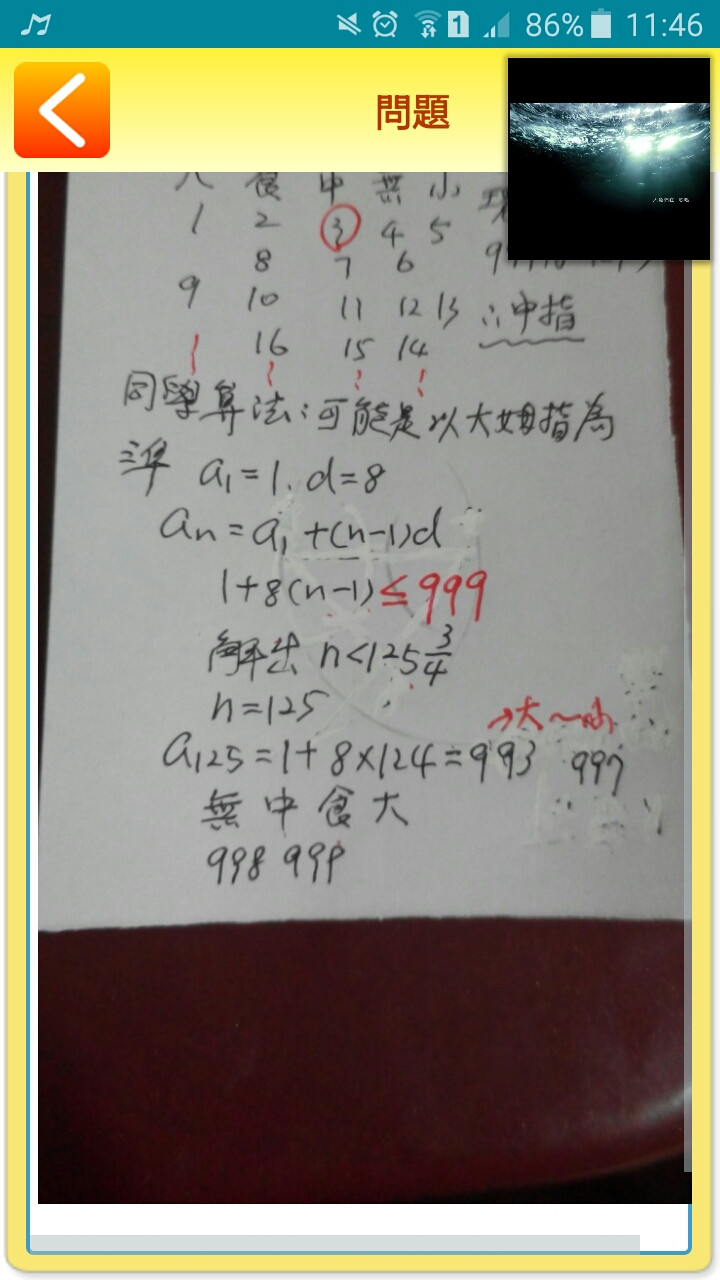 86% 11:46
問題
食 中 無 小
1 2 3 4 5
8 7 6
9 10 11 12 13
∴中指
16 15 14
同學算法:可能是以大姆指為
準 a₁=1. d=8
aₙ=a₁+(n-1)d
1+8(n-1)≤999
解出 n<125 3/4
n=125
→大~小
a₁₂₅=1+8×124=993 997
無中食大
998 999